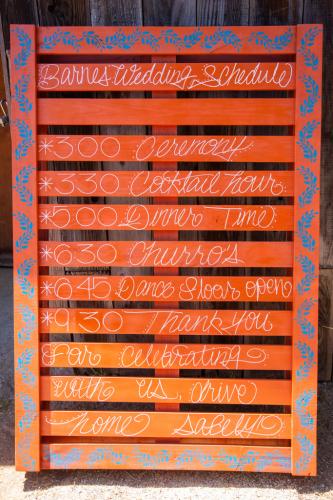 Barnes Wedding Schedule
*3:00 Ceremony
*3:30 Cocktail hour
*5:00 Dinner Time
*6:30 Churro's
*6:45 Dance floor open
*9:30 Thank You
For Celebrating
with us, drive
home safely